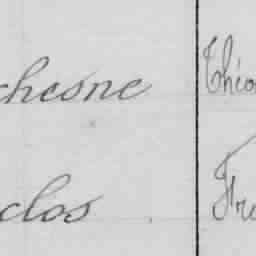 chesne Théo
clos Fra